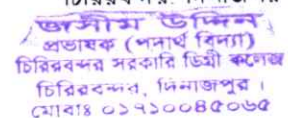 জসীম উদ্দিন
প্রভাষক (পদার্থ বিদ্যা)
চিরিরবন্দর সরকারি ডিগ্রী কলেজ
চিরিরবন্দর, দিনাজপুর।
মোবাঃ ০১৭১০০৪৫০৬৫